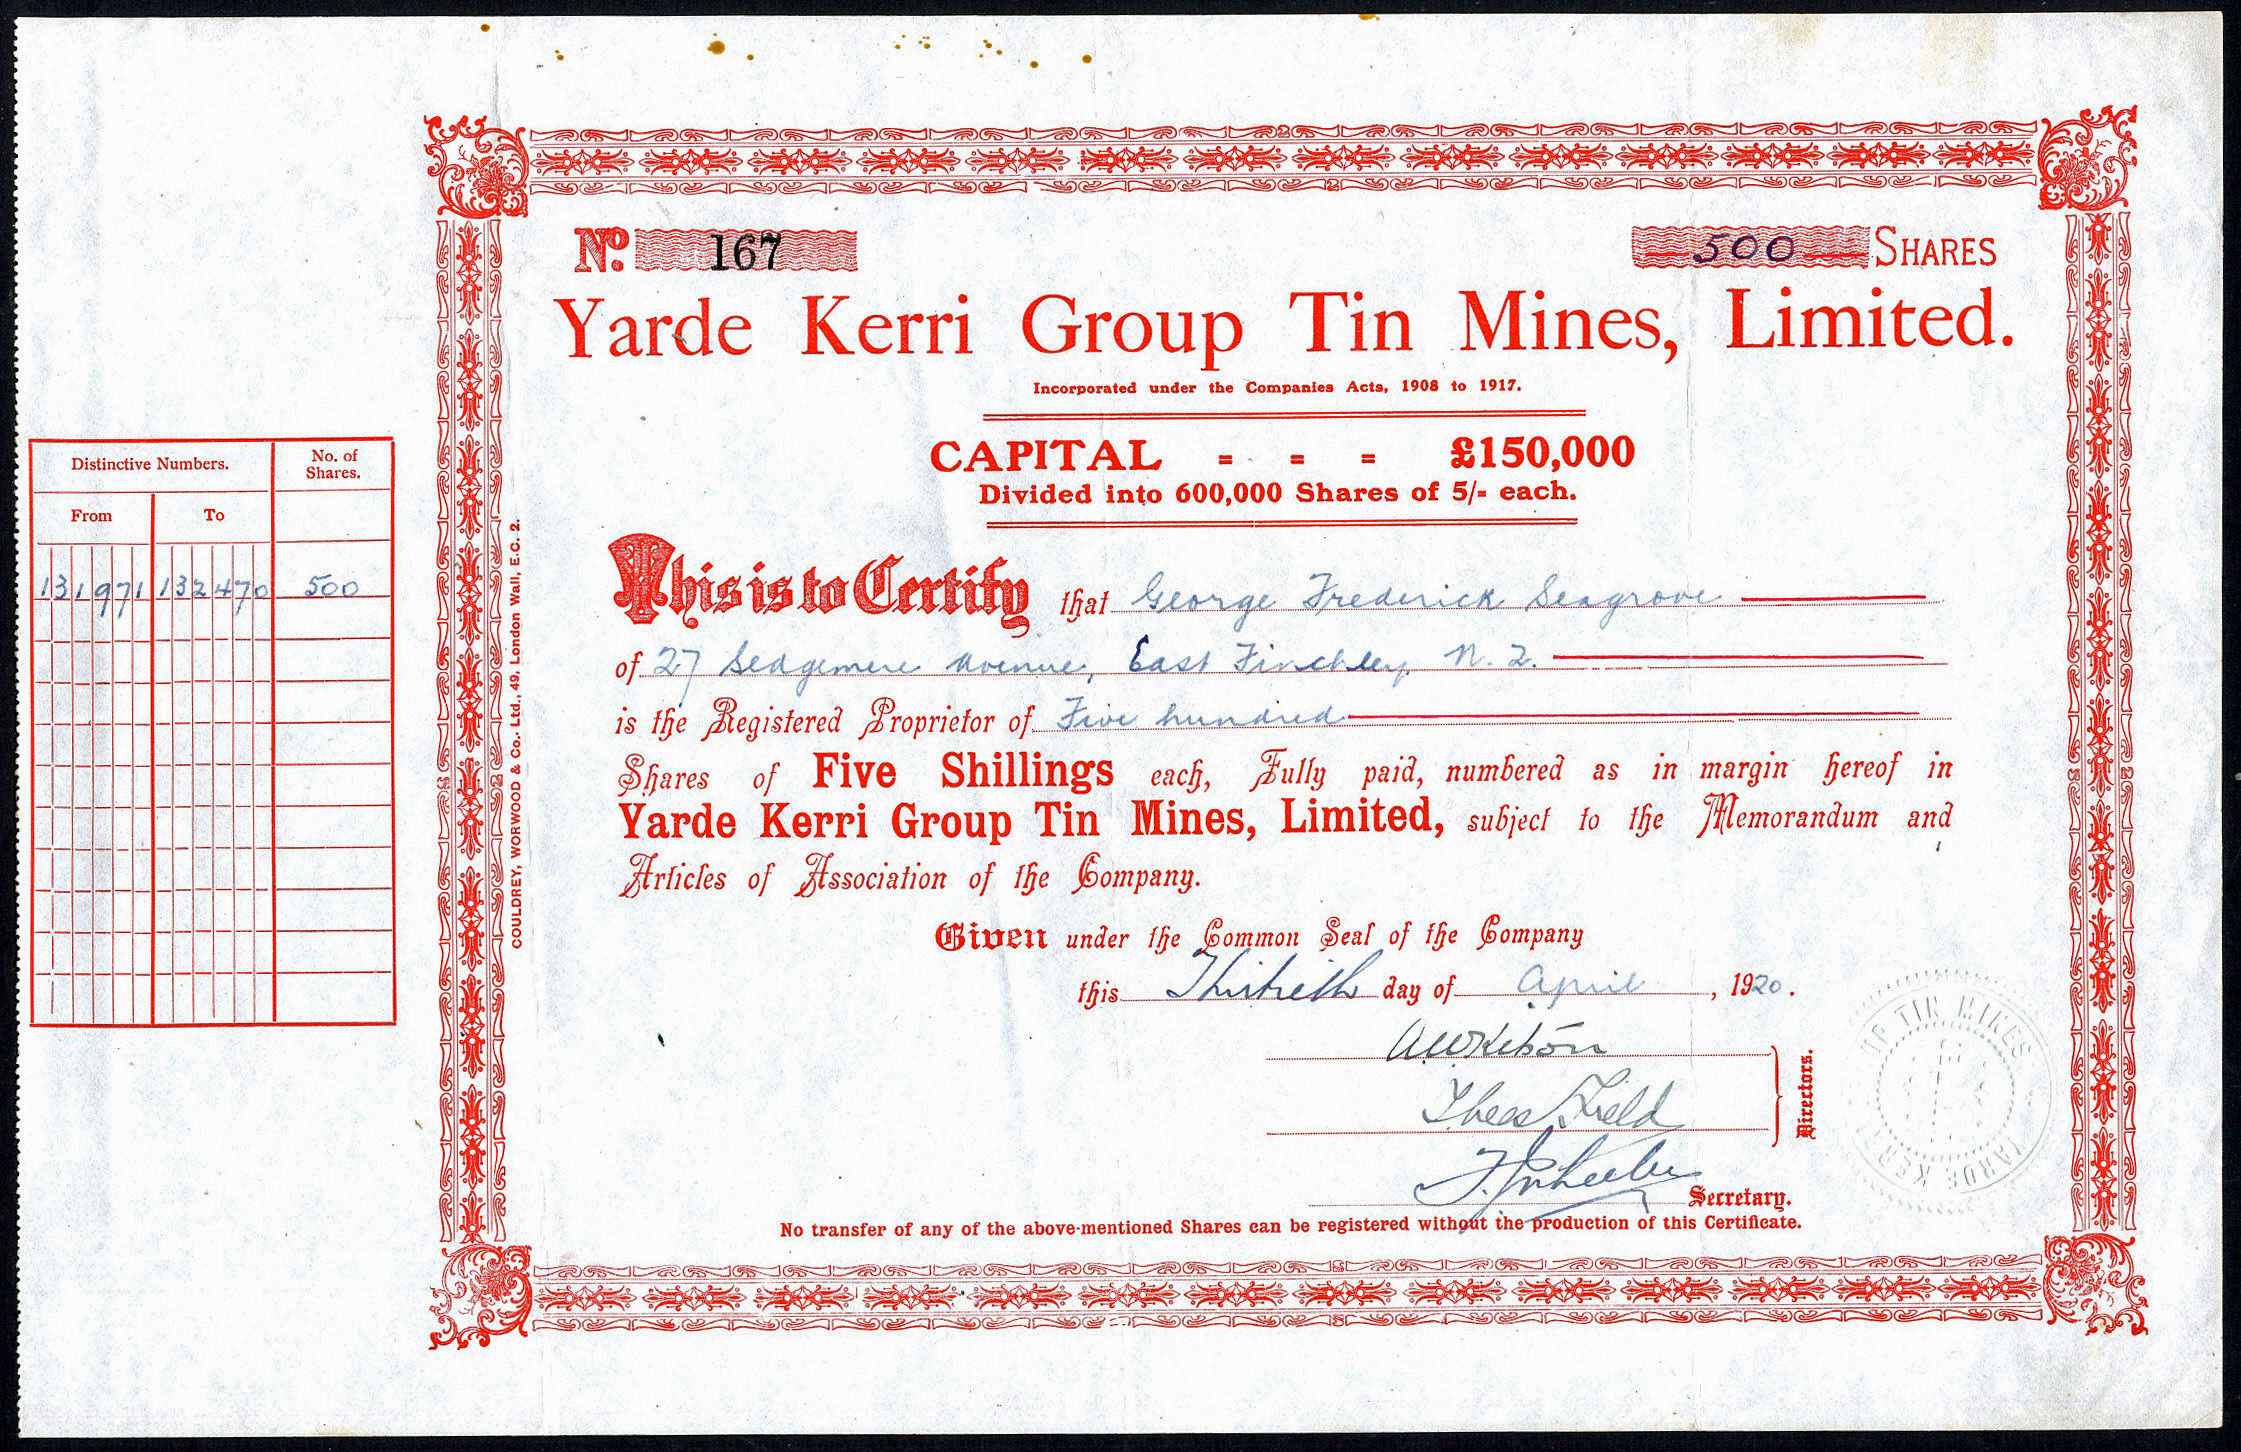 No. 167
500 SHARES
Yarde Kerri Group Tin Mines, Limited.
Incorporated under the Companies Acts, 1908 to 1917.
CAPITAL - - - £150,000
Divided into 600,000 Shares of 5/- each.
Distinctive Numbers. No. of Shares.
From To
131971 132470 500
COULDREY, WORWOOD & Co. Ltd., 49, London Wall, E.C. 2.
This is to Certify that George Frederick Seagrove
of 27 Sedgemere Avenue, East Finchley, N. 2.
is the Registered Proprietor of Five hundred
Shares of Five Shillings each, Fully paid, numbered as in margin hereof in
Yarde Kerri Group Tin Mines, Limited, subject to the Memorandum and
Articles of Association of the Company.
Given under the Common Seal of the Company
this Thirtieth day of April, 1920.
Directors.
Secretary.
No transfer of any of the above-mentioned Shares can be registered without the production of this Certificate.